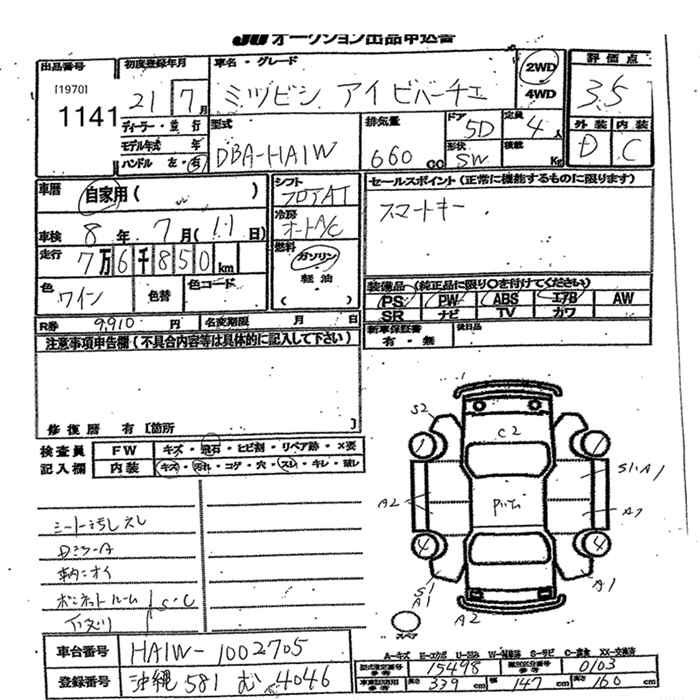 JU オークション出品申込書
出品番号 [1970] 1141
初度登録年月 21 7月
車名・グレード ミツビシ アイ ビバーチェ
2WD
4WD
評価点 3.5
外装 D 内装 C
ディーラー・並行
モデル年式 年
ハンドル 左・右
型式 DBA-HA1W
排気量 660 CC
ドア 5D 形状 SW
定員 4人 積載 Kg
車暦 自家用( )
車検 8年 7月(11日)
走行 7万6千850km
色 ワイン 色替 色コード
シフト フロアAT
冷房 オートA/C
燃料 ガソリン・軽油
( )
セールスポイント(正常に機能するものに限ります)
スマートキー
装備品(純正品に限り○を付けてください)
PS PW ABS エアB AW
SR ナビ TV カワ
新車保証書 有・無
後日品
R券 9,910円 名変期限 月 日
注意事項申告欄(不具合内容等は具体的に記入して下さい)
修復暦 有[箇所 ]
検査員記入欄
FW キズ・飛石・ヒビ割・リペア跡・×要
内装 キズ・汚れ・コゲ・穴・スレ・キレ・凹レ
シート汚レスレ
車内ニオイ
ボンネットルーム S・C
S2
C2
1
1
S1・A1
A2
A2
4
4
S1
A1
A1
A2
スペア
A-キズ E-エクボ U-凹み W-補修跡 S-サビ C-腐食 XX-交換済
車台番号 HA1W-1002705
登録番号 沖縄 581 む 4046
型式指定番号 参考 15498 類別区分番号 参考 0103
長さ 339cm 幅 147cm 高さ 160cm